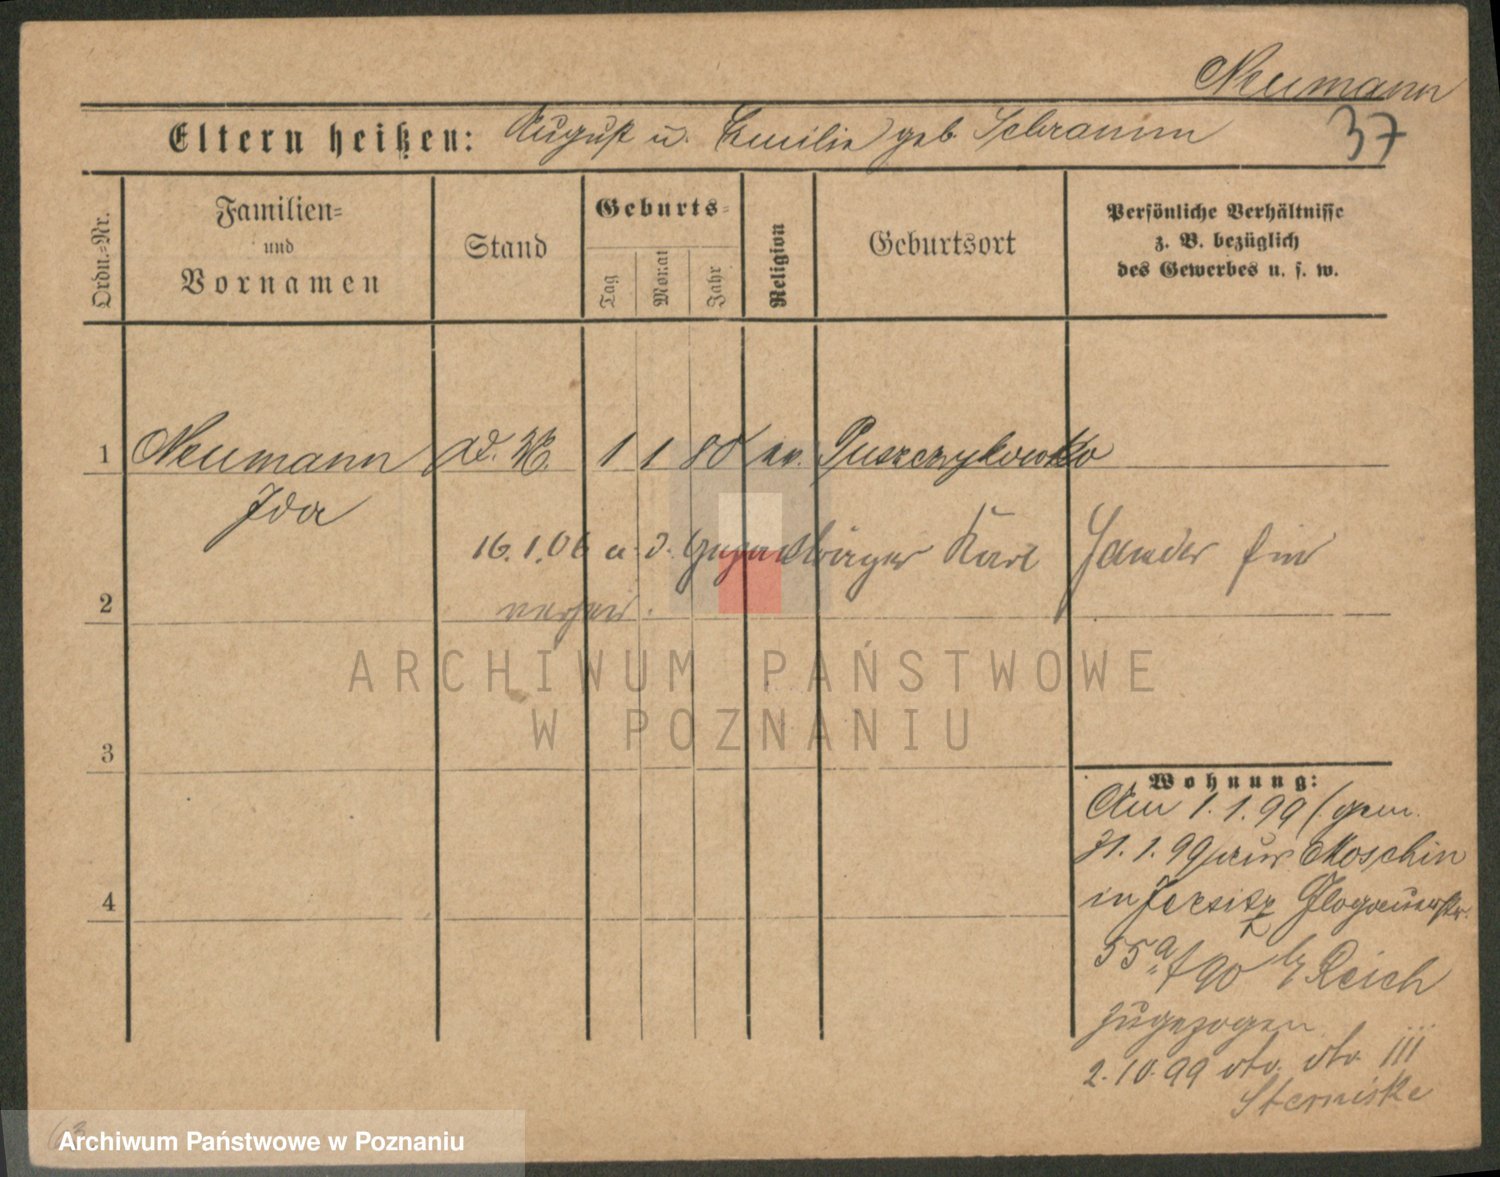 Neumann
37
Eltern heißen: August u. Emilie geb. Schramm
Ordn.=Nr.
Familien=
und
Vornamen
Stand
Geburts=
Tag
Monat
Jahr
Religion
Geburtsort
Persönliche Verhältnisse
z. B. bezüglich
des Gewerbes u. s. w.
1 Neumann 1 1 80 ev. Puszczykowko
Ida
16.1.06 a. d. Karl
2
3
4
Wohnung:
Am 1. 1. 99 (gem.
31. 1. 99) aus Moschin
in Jersitz Glogauerstr.
55a b/ Reich
zugezogen
2.10.99 III
ARCHIWUM PAŃSTWOWE
W POZNANIU
Archiwum Państwowe w Poznaniu